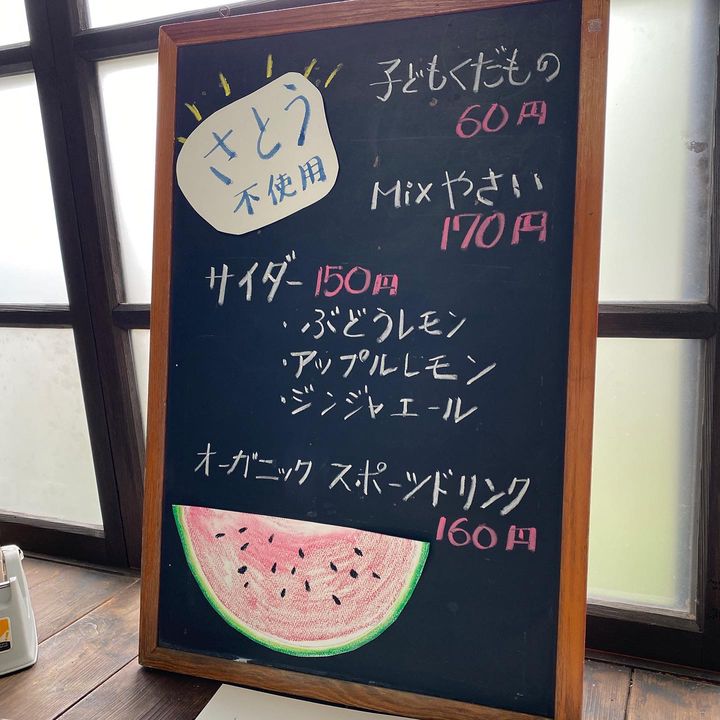 さとう
不使用
子どもくだもの
60円
Mixやさい
170円
サイダー 150円
・ぶどうレモン
・アップルレモン
・ジンジャエール
オーガニック スポーツドリンク
160円